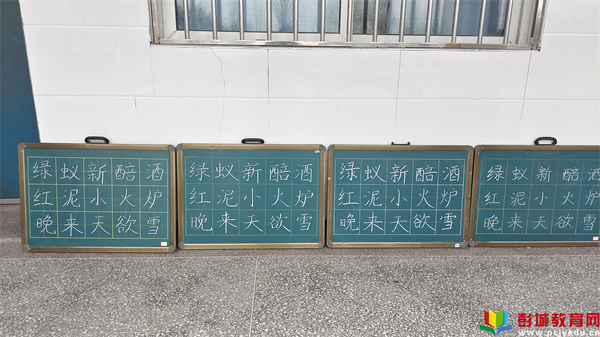 绿蚁新醅酒
红泥小火炉
晚来天欲雪
绿蚁新醅酒
红泥小火炉
晚来天欲雪
绿蚁新醅酒
红泥小火炉
晚来天欲雪
绿蚁新醅酒
红泥小火炉
晚来天欲雪
彭城教育网
www.pcjyedu.cn